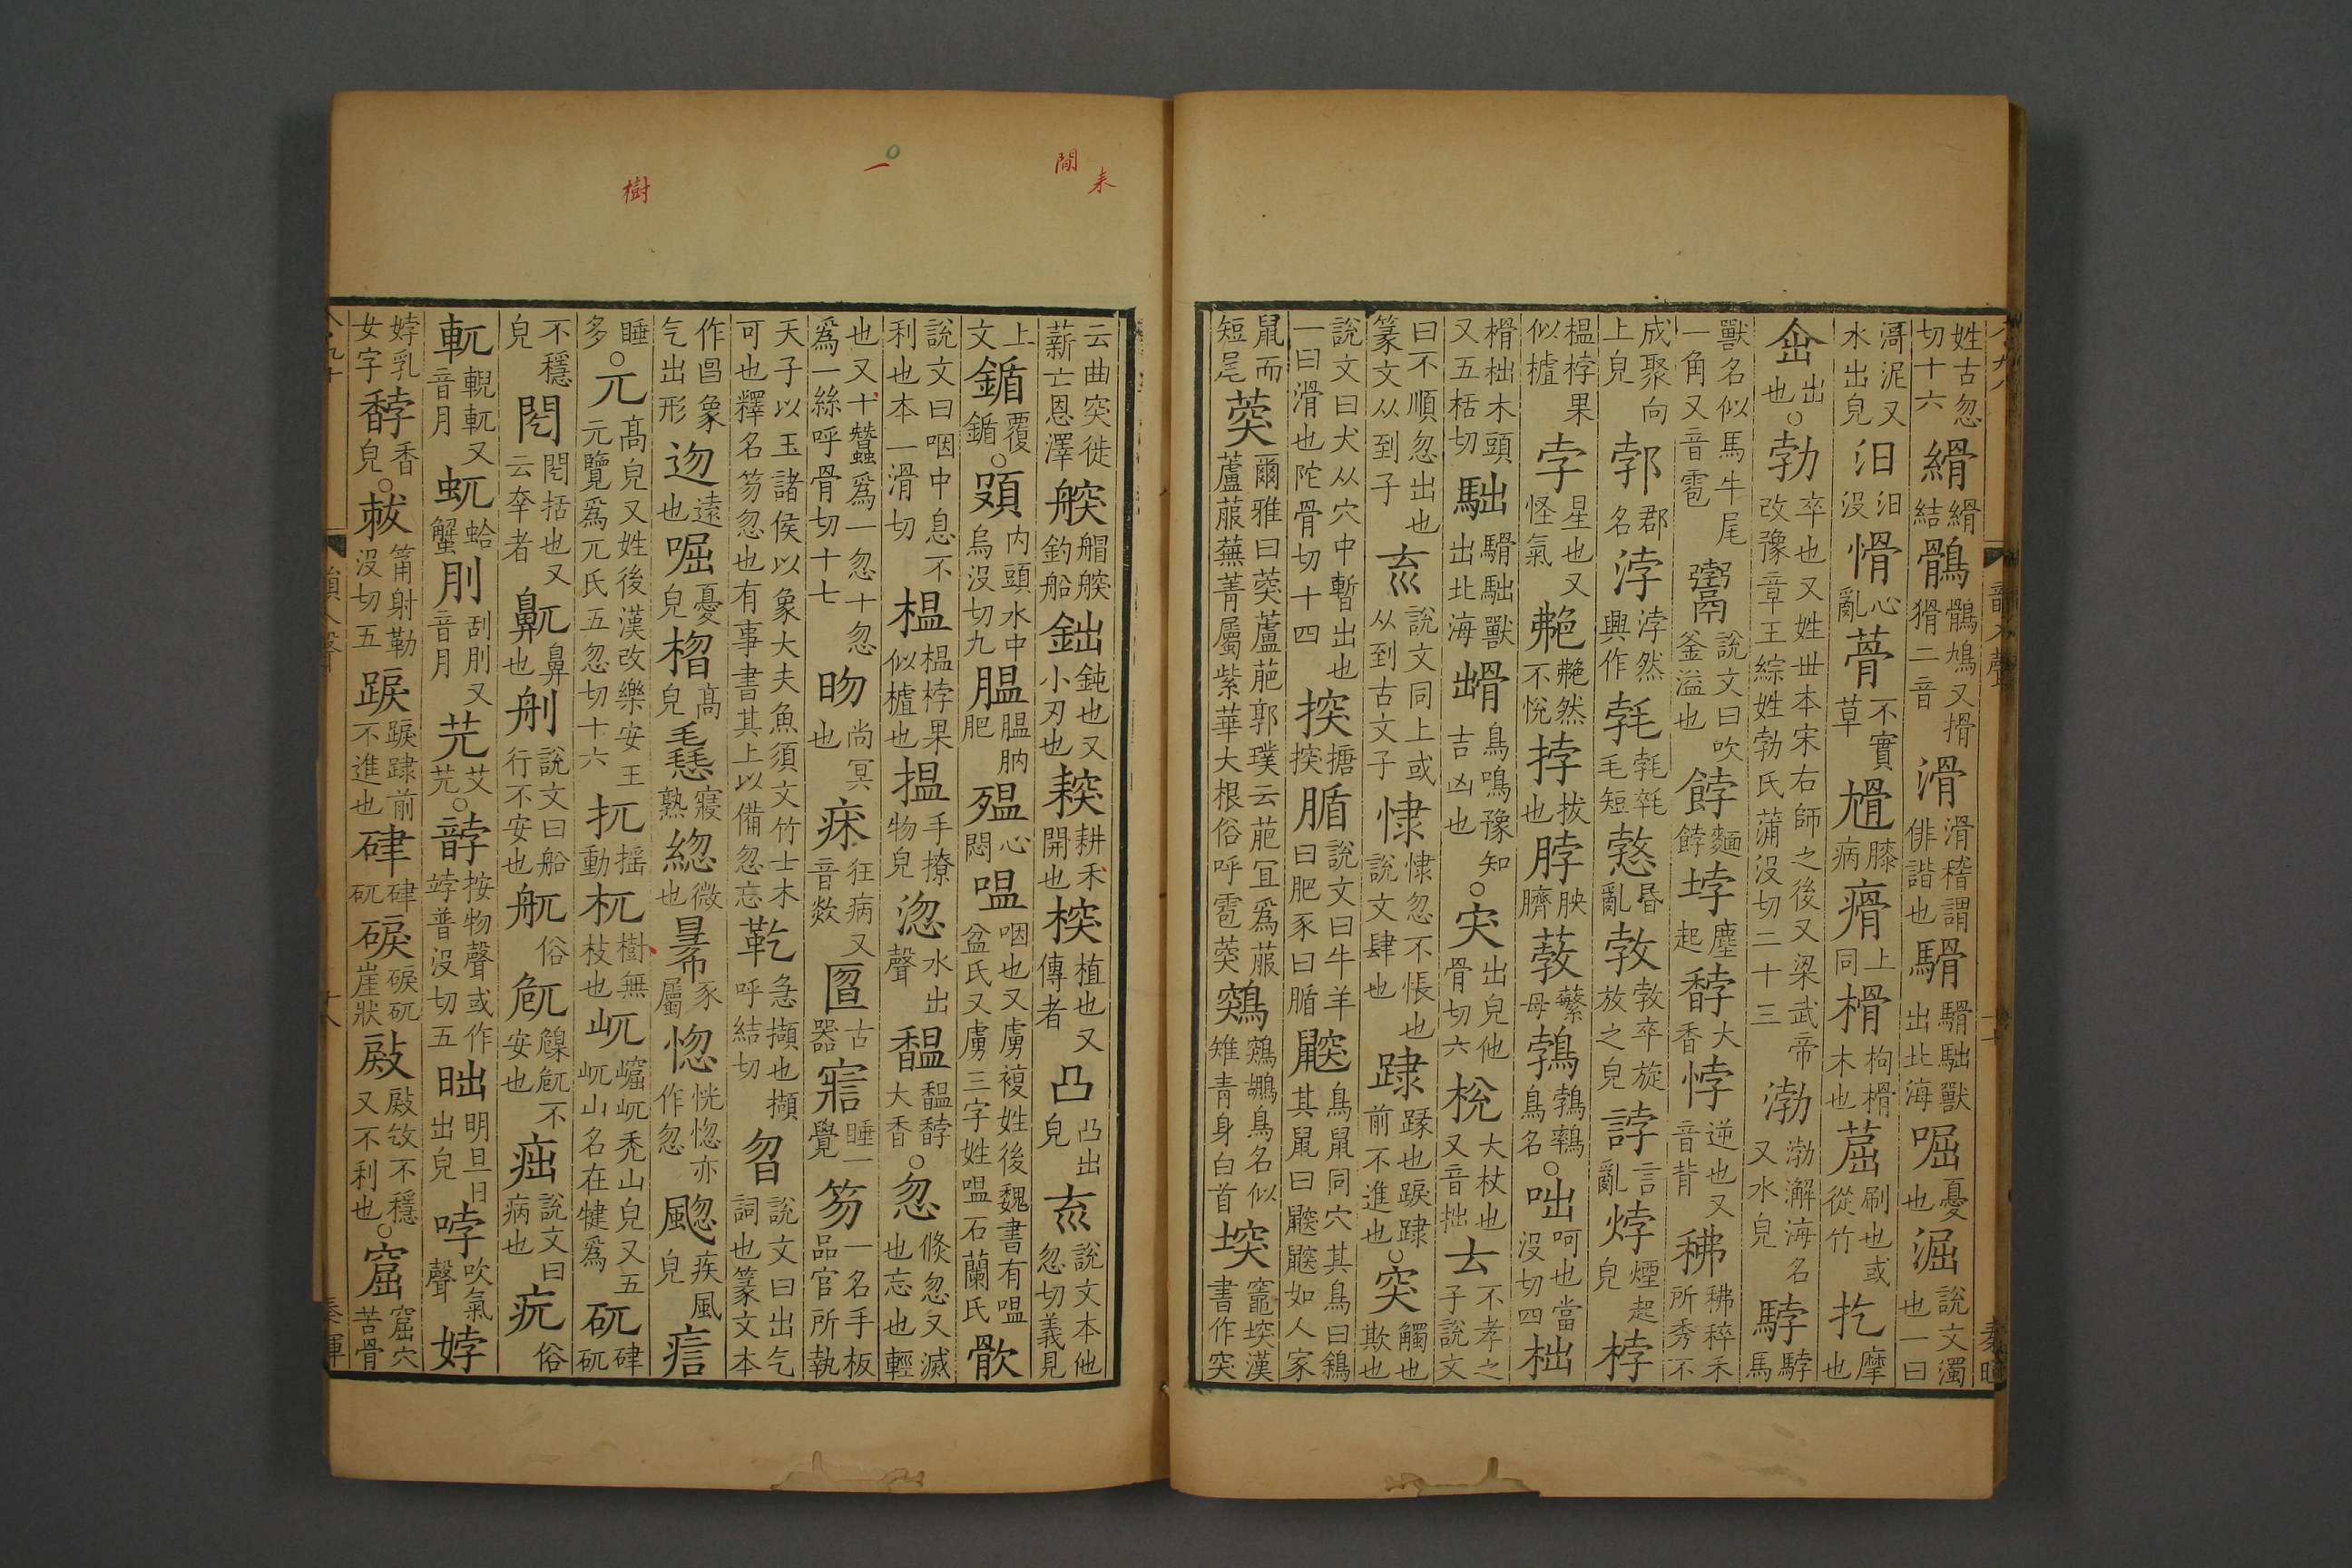 姓古忽切十六縎縎結鶻鶻鳩又搰猾二音滑滑稽謂俳諧也䮩䮩䭇獸出北海𠷯憂也淈說文濁也一曰
淈泥又水出皃汩汩没愲心亂蓇不實草尳膝病㾶上同榾枸榾木也䓛刷也或從竹扢摩也
㞮出也○勃卒也又姓丗本宋右師之後又梁武帝改豫章王綜姓勃氏蒲没切二十三渤渤澥海名又水皃馞
獸名似馬牛尾一角又音雹鬻說文曰吹釜溢也餑麵餑㘺塵起馞大香悖逆也又音背䊧䊧稡禾所秀不
成聚向上皃郣郡名浡浡然興作㲫㲫㲞毛短愂㥧亂敦敦卒旋放之皃誖言亂㶿煙起皃桲
榲桲果似樝孛星也又怪氣艴艴然不悅挬拔也脖胦臍蔎蘩母鵓鵓鶉鳥名○咄呵也當没切四柮
榾柮木頭又五栝切䭇䮩䭇獸出北海䶕鳥鳴豫知吉凶也○宊出皃他骨切六梲大杖也又音拙𠫓不孝之子說文
曰不順忽出也篆文从到子㐬說文同上或从到古文子㥆㥆忽不悵也說文肆也𨁸蹂也踧𨁸前不進也○突觸也欺也
說文曰犬从穴中暫出也一曰滑也陀骨切十四揬搪揬腯說文曰牛羊曰肥豕曰腯鼵鳥鼠同穴其鳥曰鵌其鼠曰鼵鼵如人家
鼠而短尾葖爾雅曰葖蘆萉郭璞云萉宜爲菔蘆菔蕪菁屬紫華大根俗呼雹葖鶟鶟鶘鳥名似雉青身白首堗竈堗漢書作突
云曲突徙薪亡恩澤䑢艒䑢釣船鈯鈍也又小刃也䅐耕禾開也㮑植也又傳者凸凸出皃㐬說文本他忽切義見
上文鍎覆鍎○頞内頭水中烏没切九腽腽肭肥殟心悶嗢咽也又虜複姓後魏書有嗢盆氏又虜三字姓嗢石蘭氏㱁
說文曰咽中息不利也本一滑切榲榲桲果似樝也搵手撩物皃㴾水出聲馧馧馞大香○忽倏忽又滅也忘也輕
也又十蠶爲一忽十忽爲一絲呼骨切十七昒尚冥也㾂狂病又音欻匫古器寣睡一覺笏一名手板品官所執
天子以玉諸侯以象大夫魚須文竹士木可也釋名笏忽也有事書其上以備忽忘䩐急擷也擷呼結切曶說文曰出气詞也篆文本
作㫚象气出形迿遠也𠷯憂皃榾高皃㲬寢熟緫微也㣇豕屬惚恍惚亦作忽颮疾風皃㾕
睡多○兀高皃又姓後漢改樂安王元覽爲兀氏五忽切十六扤摇動杌樹無枝也屼𡾇屼秃山皃又五屼山名在犍爲矹硉矹
不穩皃䦍䦍括也又云𡘇者鼿鼻也刖說文曰船行不安也舠俗𡯠臲𡯠不安也㾊說文曰病也㽻俗
軏輗軏又音月蚎蛤蟹刖刮刖又音月芫艾芫○䪬按物聲或作㖣普没切五䀼明旦日出皃哱吹氣聲㛘
㛘乳女字馞香皃○𣜿䈜射勒没切五踧踧𨁸前不進也硉硉矹䃔䃔矹崖狀㱂㱂㱂不穩又不利也○窟窟穴苦骨
耒
間
一
樹